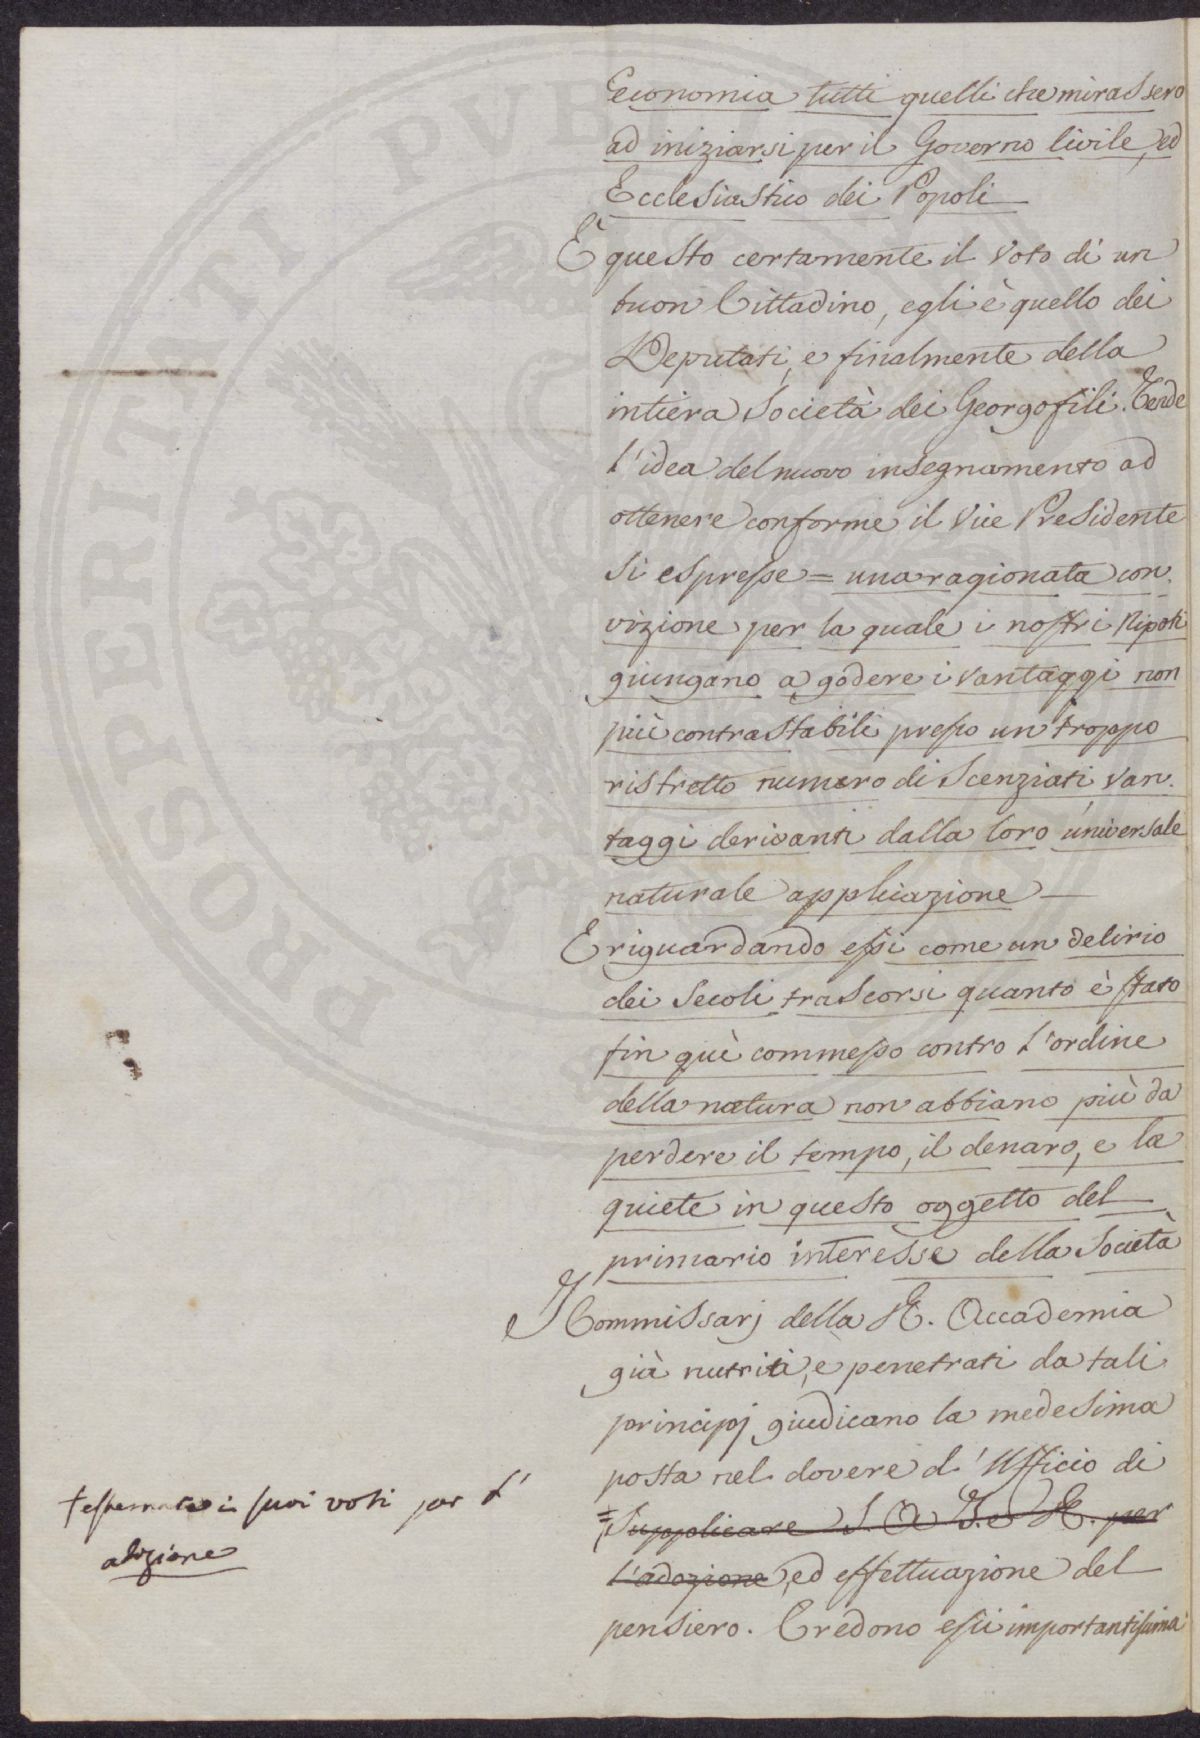 Economia tutti quelli che mirassero
ad iniziarsi per il Governo Civile, ed
Ecclesiastico dei Popoli
È questo certamente il voto di un
buon Cittadino, egli è quello dei
Deputati, e finalmente della
intiera Società dei Georgofili. Tende
l'idea del nuovo insegnamento ad
ottenere conforme il Vice Presidente
si espresse = una ragionata con-
vizione per la quale i nostri Nipoti
giungano a godere i vantaggi non
più contrastabili presso un troppo
ristretto numero di Scenziati, van-
taggi derivanti dalla loro universale
naturale applicazione —
E riguardando essi come un delirio
dei Secoli trascorsi quanto è stato
fin quì commesso contro l'ordine
della natura non abbiano più da
perdere il tempo, il denaro, e la
quiete in questo oggetto del
primario interesse della Società
I Commissarj della R. Accademia
già nutriti, e penetrati da tali
principj giudicano la medesima
posta nel dovere d'Ufficio di
Supplicare S. A. I. e R. per
l'adozione, ed effettuazione del
pensiero. Credono essi importantissima
i suoi voti per l'
adozione
PROSPERITATI PVB